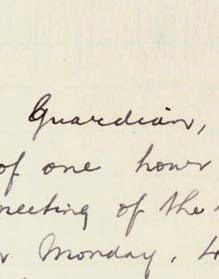 Guardian,
of one hour
meeting of the
Monday,